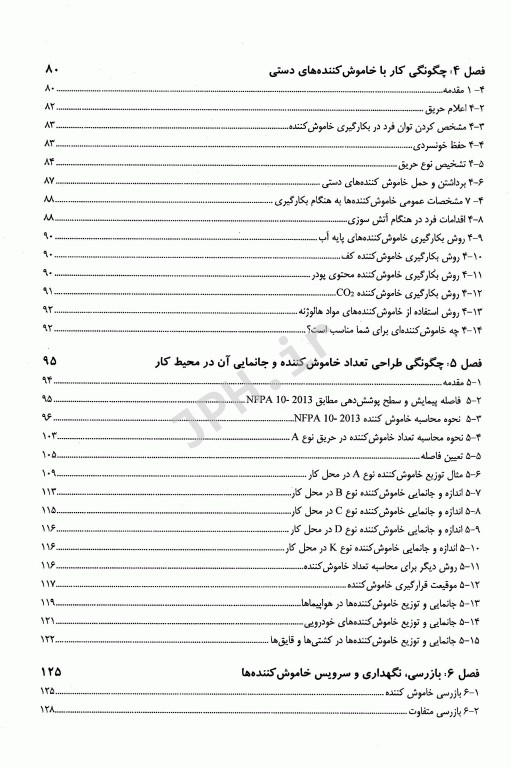 فصل ۴: چگونگی کار با خاموش‌کننده‌های دستی ۸۰
۴- ۱ مقدمه ۸۰
۴-۲ اعلام حریق ۸۲
۴-۳ مشخص کردن توان فرد در بکارگیری خاموش‌کننده ۸۳
۴-۴ حفظ خونسردی ۸۳
۴-۵ تشخیص نوع حریق ۸۴
۴-۶ برداشتن و حمل خاموش کننده‌های دستی ۸۷
۴- ۷ مشخصات عمومی خاموش‌کننده‌ها به هنگام بکارگیری ۸۸
۴-۸ اقدامات فرد در هنگام آتش سوزی ۸۸
۴-۹ روش بکارگیری خاموش‌کننده‌های پایه آب ۹۰
۴-۱۰ روش بکارگیری خاموش‌کننده کف ۹۰
۴-۱۱ روش بکارگیری خاموش‌کننده محتوی پودر ۹۰
۴-۱۲ روش بکارگیری خاموش‌کننده CO₂ ۹۱
۴-۱۳ روش استفاده از خاموش‌کننده‌های مواد هالوژنه ۹۲
۴-۱۴ چه خاموش‌کننده‌ای برای شما مناسب است؟ ۹۲
فصل ۵: چگونگی طراحی تعداد خاموش‌کننده و جانمایی آن در محیط کار ۹۵
۵-۱ مقدمه ۹۴
۵-۲ فاصله پیمایش و سطح پوشش‌دهی مطابق NFPA 10- 2013 ۹۵
۵-۳ نحوه محاسبه خاموش کننده NFPA 10- 2013 ۹۶
۵-۴ نحوه محاسبه تعداد خاموش‌کننده در حریق نوع A ۱۰۳
۵-۵ تعیین فاصله ۱۰۵
۵-۶ مثال توزیع خاموش‌کننده نوع A در محل کار ۱۰۹
۵-۷ اندازه و جانمایی خاموش‌کننده نوع B در محل کار ۱۱۳
۵-۸ اندازه و جانمایی خاموش‌کننده نوع C در محل کار ۱۱۵
۵-۹ اندازه و جانمایی خاموش‌کننده نوع D در محل کار ۱۱۶
۵-۱۰ اندازه و جانمایی خاموش‌کننده نوع K در محل کار ۱۱۶
۵-۱۱ روش دیگر برای محاسبه تعداد خاموش‌کننده ۱۱۶
۵-۱۲ موقعیت قرارگیری خاموش‌کننده ۱۱۷
۵-۱۳ جانمایی و توزیع خاموش‌کننده‌ها در هواپیماها ۱۱۹
۵-۱۴ جانمایی و توزیع خاموش‌کننده‌های خودرویی ۱۲۱
۵-۱۵ جانمایی و توزیع خاموش‌کننده‌ها در کشتی‌ها و قایق‌ها ۱۲۲
فصل ۶: بازرسی، نگهداری و سرویس خاموش‌کننده‌ها ۱۲۵
۶-۱ بازرسی خاموش کننده ۱۲۵
۶-۲ بازرسی متفاوت ۱۲۸
JPH.ir